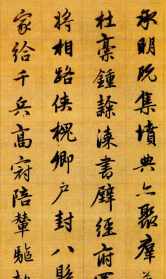 承明既集墳典亦聚羣
杜稾鍾隸漆書壁經府
將相路俠槐卿戶封八縣
家給千兵高冠陪輦驅